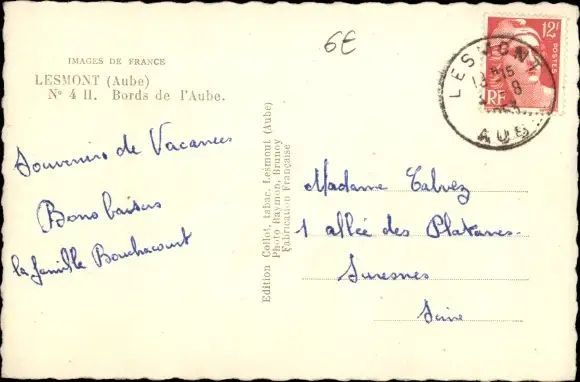 6€
IMAGES DE FRANCE
LESMONT (Aube)
Nº 4 H. Bords de l'Aube.
12F
POSTES
RF
LESMONT
AUBE
Souvenirs de Vacances
Bons baisers
la famille Bouchacourt
Edition Collot, tabac, Lesmont (Aube)
Photo Raymon, Brunoy
Fabrication Française
Madame Calvez
1 allée des Platanes.
Suresnes
Seine